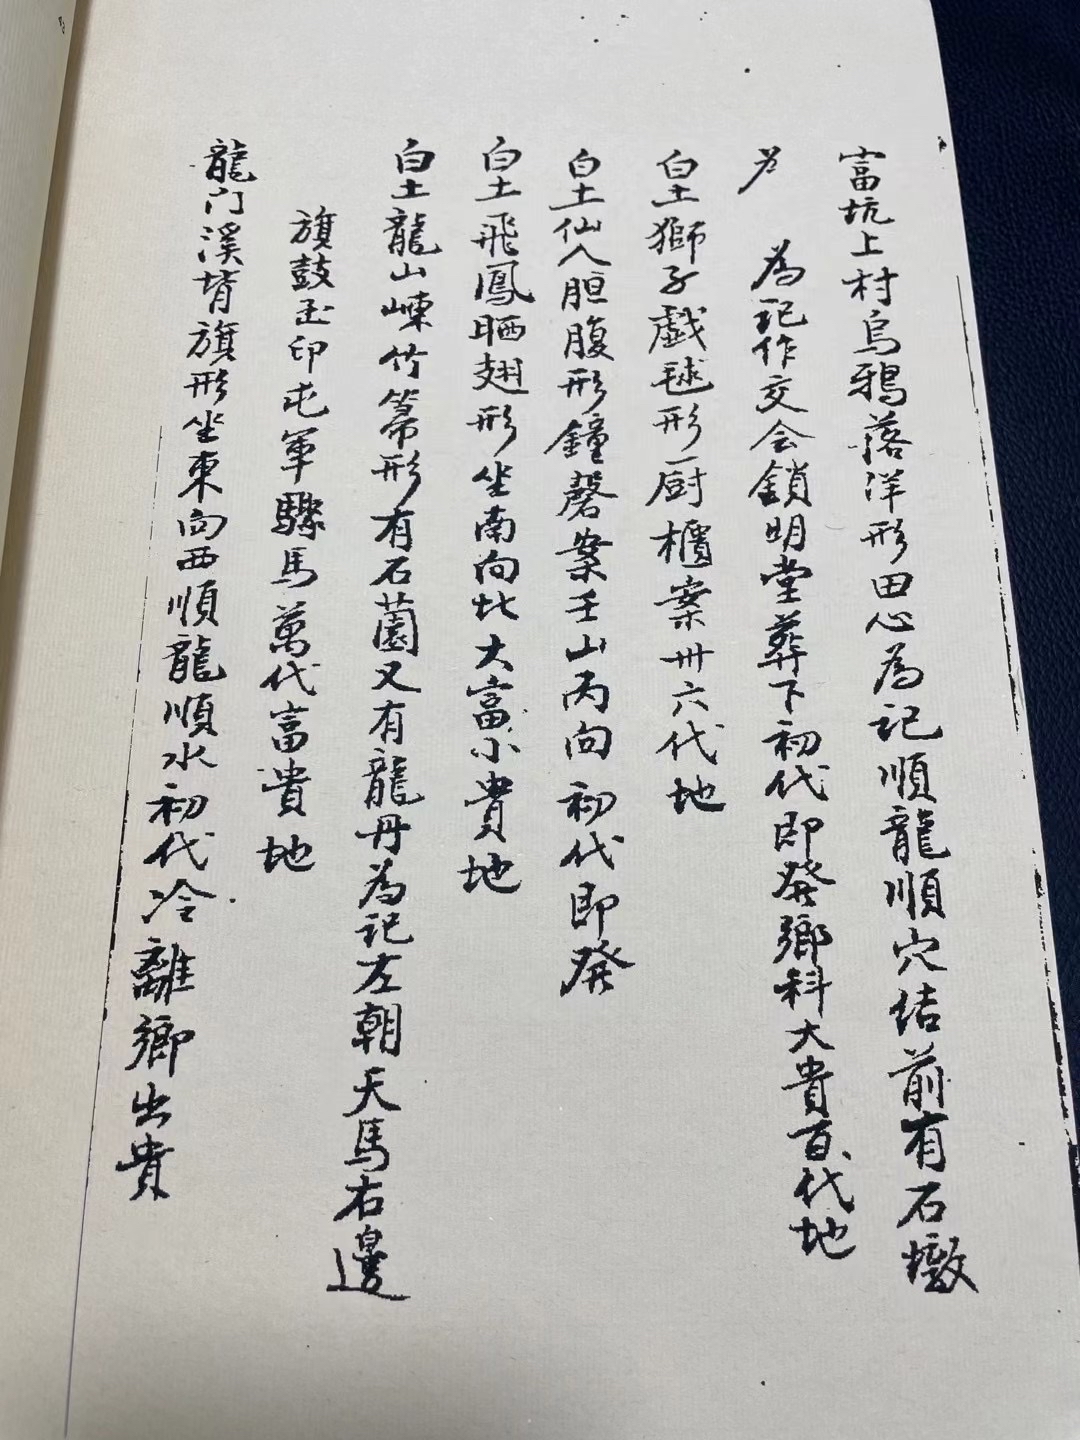 富坑上村烏鴉落洋形田心為記順龍順穴结前有石墩
為記作交会鎖明堂葬下初代即發鄉科大貴百代地
白土獅子戲毬形厨櫃案卅六代地
白土仙人胆腹形鐘磬案壬山丙向初代即發
白土飛鳳晒翅形坐南向北大富小貴地
白土龍山崠竹篙形有石薗又有龍丹為記左朝天馬右邊
旗鼓玉印屯軍騾馬萬代富貴地
龍门溪背旗形坐東向西順龍順水初代冷離鄉出貴